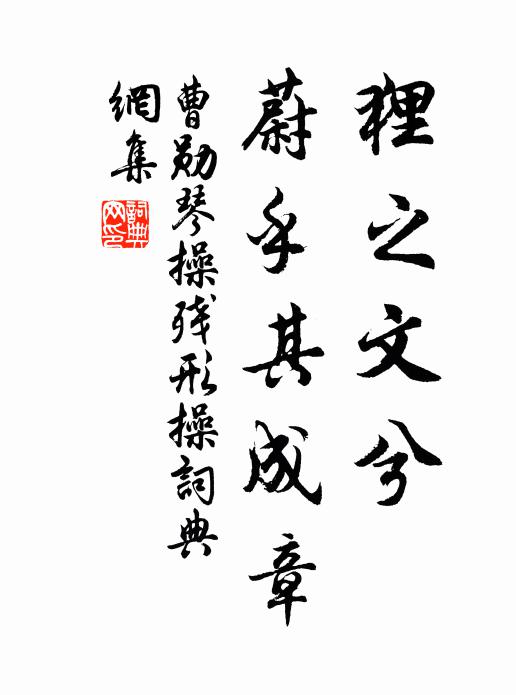 狸之文兮
蔚乎其成章
曹勋琴操残形操詞典
網集
詞典網印